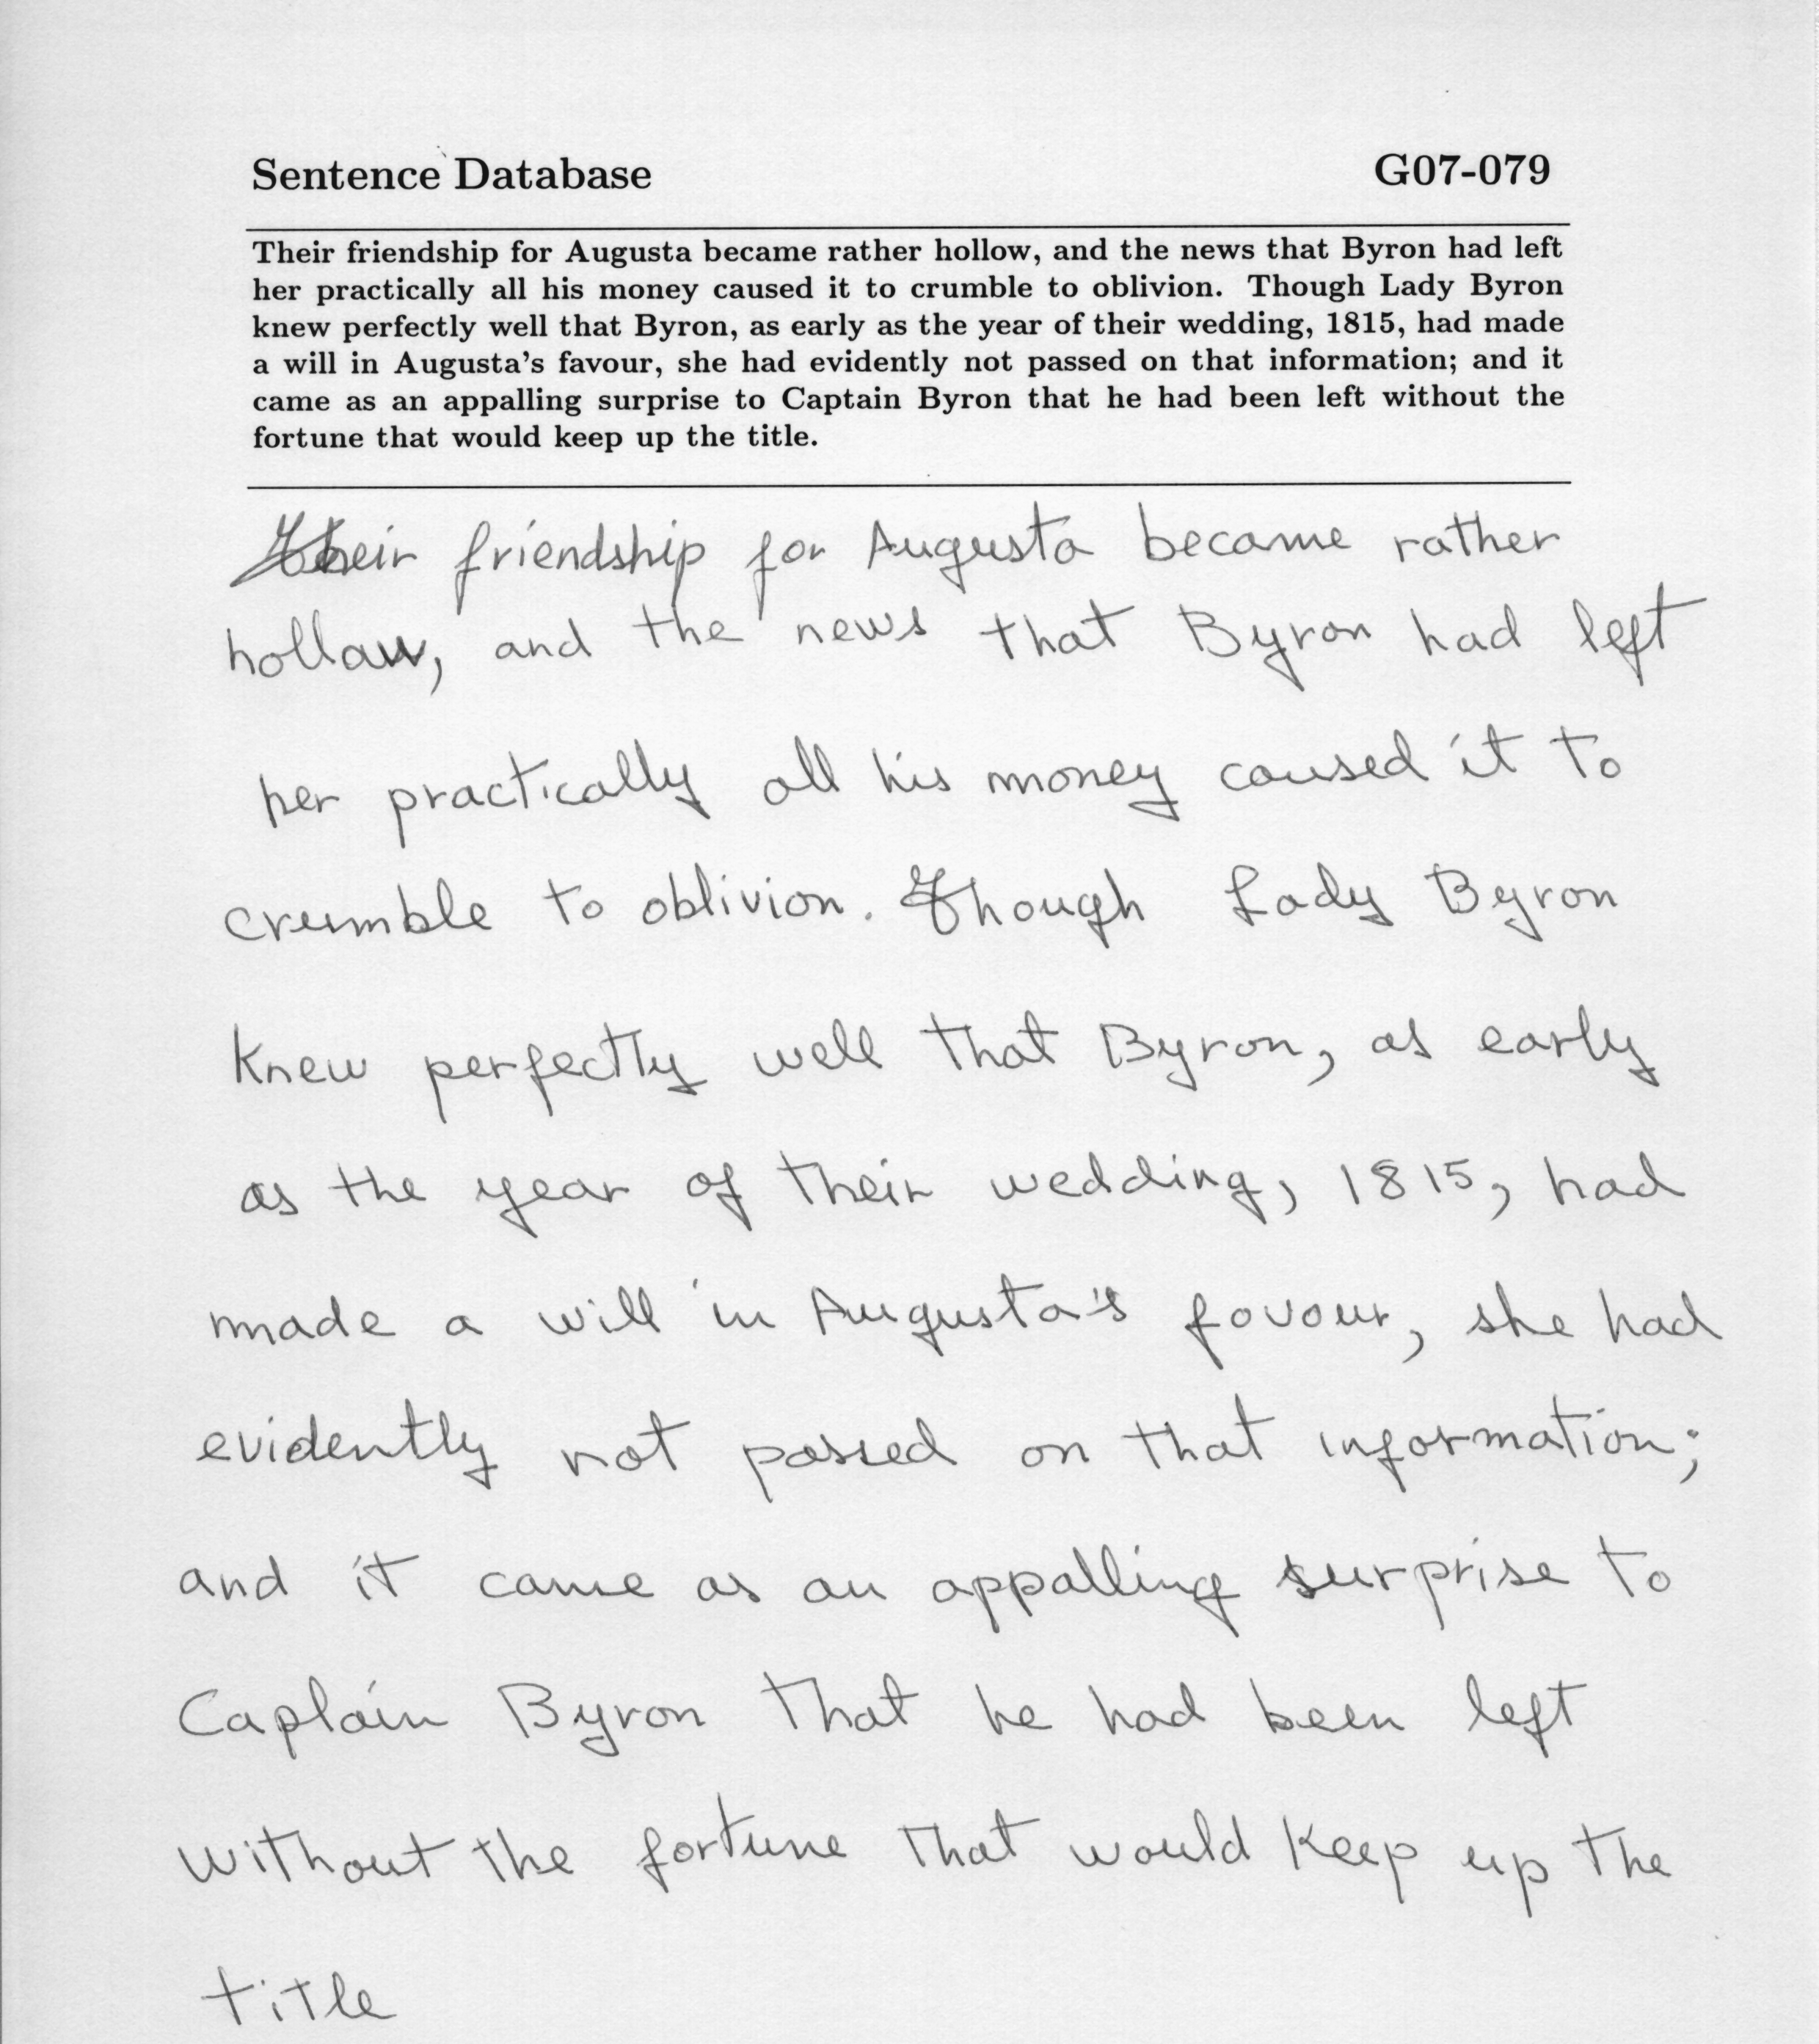 Sentence Database G07-079
Their friendship for Augusta became rather hollow, and the news that Byron had left
her practically all his money caused it to crumble to oblivion. Though Lady Byron
knew perfectly well that Byron, as early as the year of their wedding, 1815, had made
a will in Augusta's favour, she had evidently not passed on that information; and it
came as an appalling surprise to Captain Byron that he had been left without the
fortune that would keep up the title.
Their friendship for Augusta became rather
hollow, and the news that Byron had left
her practically all his money caused it to
crumble to oblivion. Though Lady Byron
knew perfectly well that Byron, as early
as the year of their wedding, 1815, had
made a will in Augusta's favour, she had
evidently not passed on that information;
and it came as an appalling surprise to
Captain Byron that he had been left
without the fortune that would keep up the
title